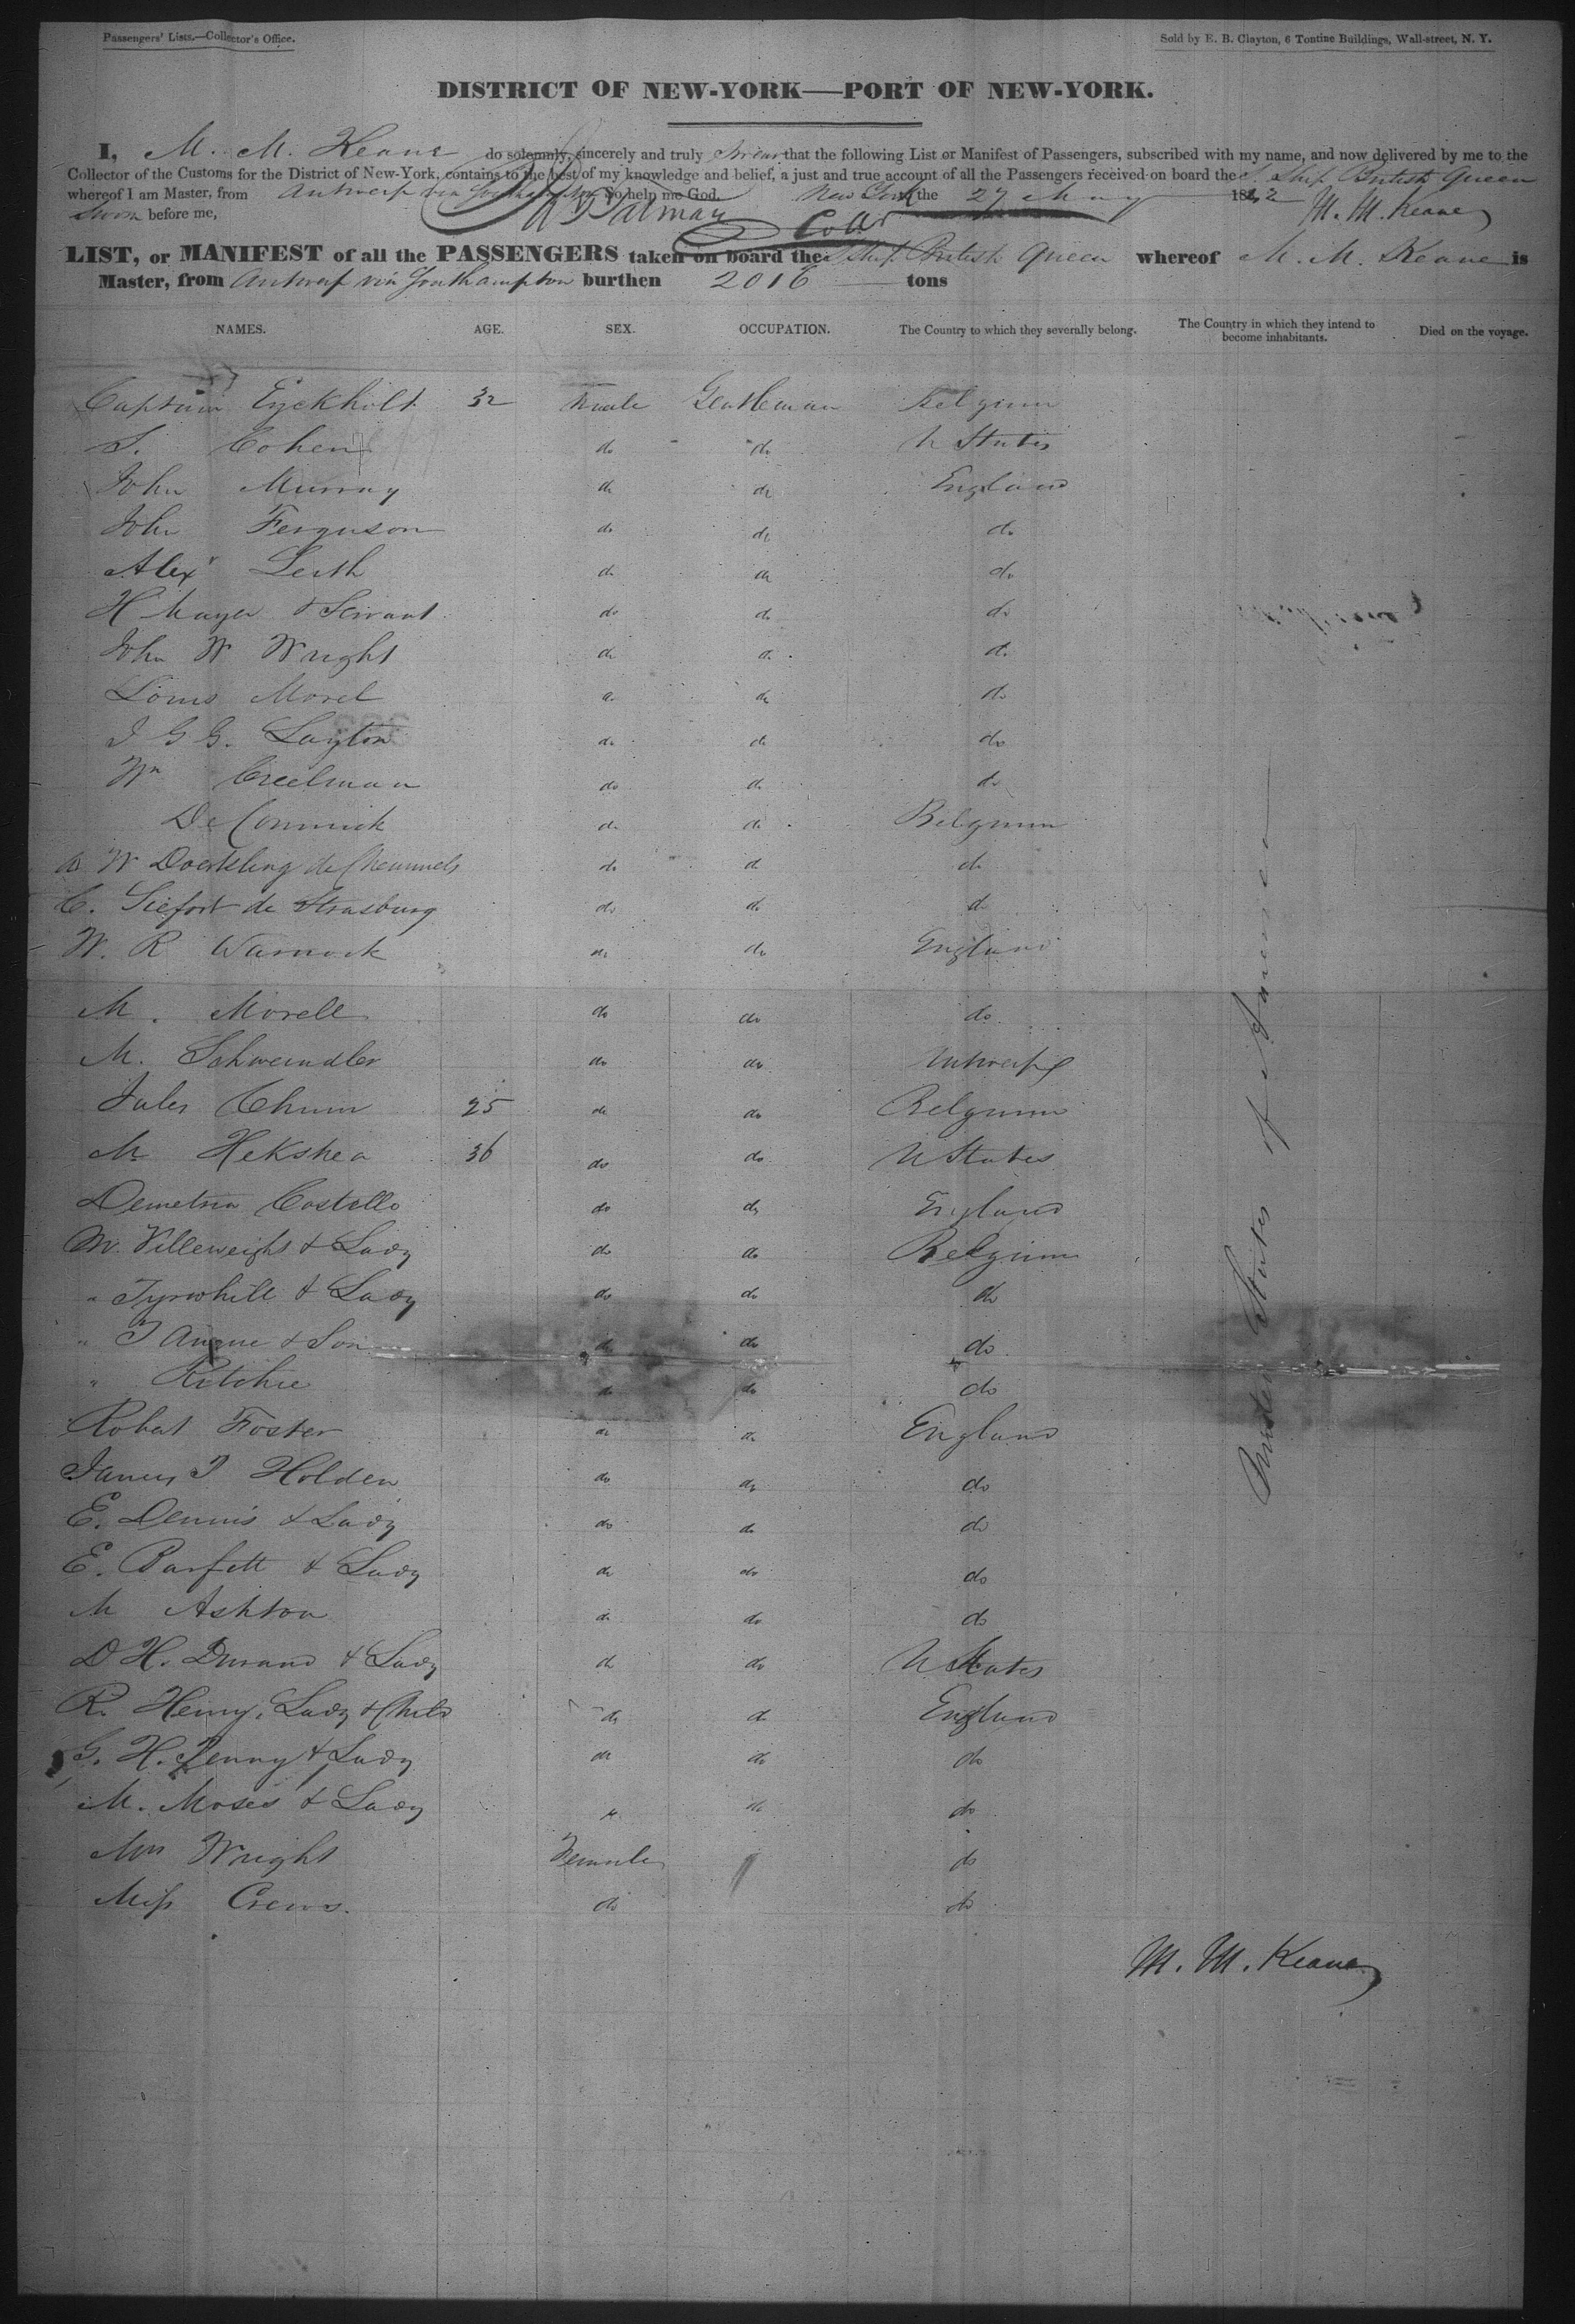 Passengers' Lists.—Collector's Office.
Sold by E. B. Clayton, 6 Tontine Buildings, Wall-street, N. Y.
DISTRICT OF NEW-YORK—PORT OF NEW-YORK.
I, M. M. Keane do solemnly, sincerely and truly swear that the following List or Manifest of Passengers, subscribed with my name, and now delivered by me to the
Collector of the Customs for the District of New-York, contains to the best of my knowledge and belief, a just and true account of all the Passengers received on board the S. Ship British Queen
whereof I am Master, from Antwerp via Southampton So help me God. New York the 27 May 1842
Sworn before me, M. M. Keane
LIST, or MANIFEST of all the PASSENGERS taken on board the S Ship British Queen whereof M. M. Keane is
Master, from Antwerp via Southampton burthen 2016 tons
NAMES. AGE. SEX. OCCUPATION. The Country to which they severally belong. The Country in which they intend to become inhabitants. Died on the voyage.
Captain Eyckholt 32 male Gentleman Belgium
S. Cohen do do U States
John Murray do do England
John Ferguson do do do
Alexr Leith do do do
H Mayer & Servant do do do
John W Wright do do do
Louis Morel do do do
J G G. Layton do do do
Wm Creelman do do do
De Connick do do Belgium
W do do do
C. Siefort de Strasburg do do do
W. R Warnock do do England
M. Morell do do do
M. Schwendler do do Antwerp
Jules 25 do do Belgium
M. Hekshea 36 do do U States
Demetria Costello do do England
M. & Lady do do Belgium
" Tyrwhill & Lady do do do
" & Son do do do
" Ritchie do do do
Robert Foster do do England
James J Holden do do do
E. Dennis & Lady do do do
E. Parfett & Lady do do do
M Ashton do do do
D H. Durand & Lady do do U States
R. Henry, Lady & Child do do England
G. H. Penny & Lady do do do
M. Moses & Lady do do do
Mrs Wright Female do
Miss Crews. do do
United States of America
M. M. Keane